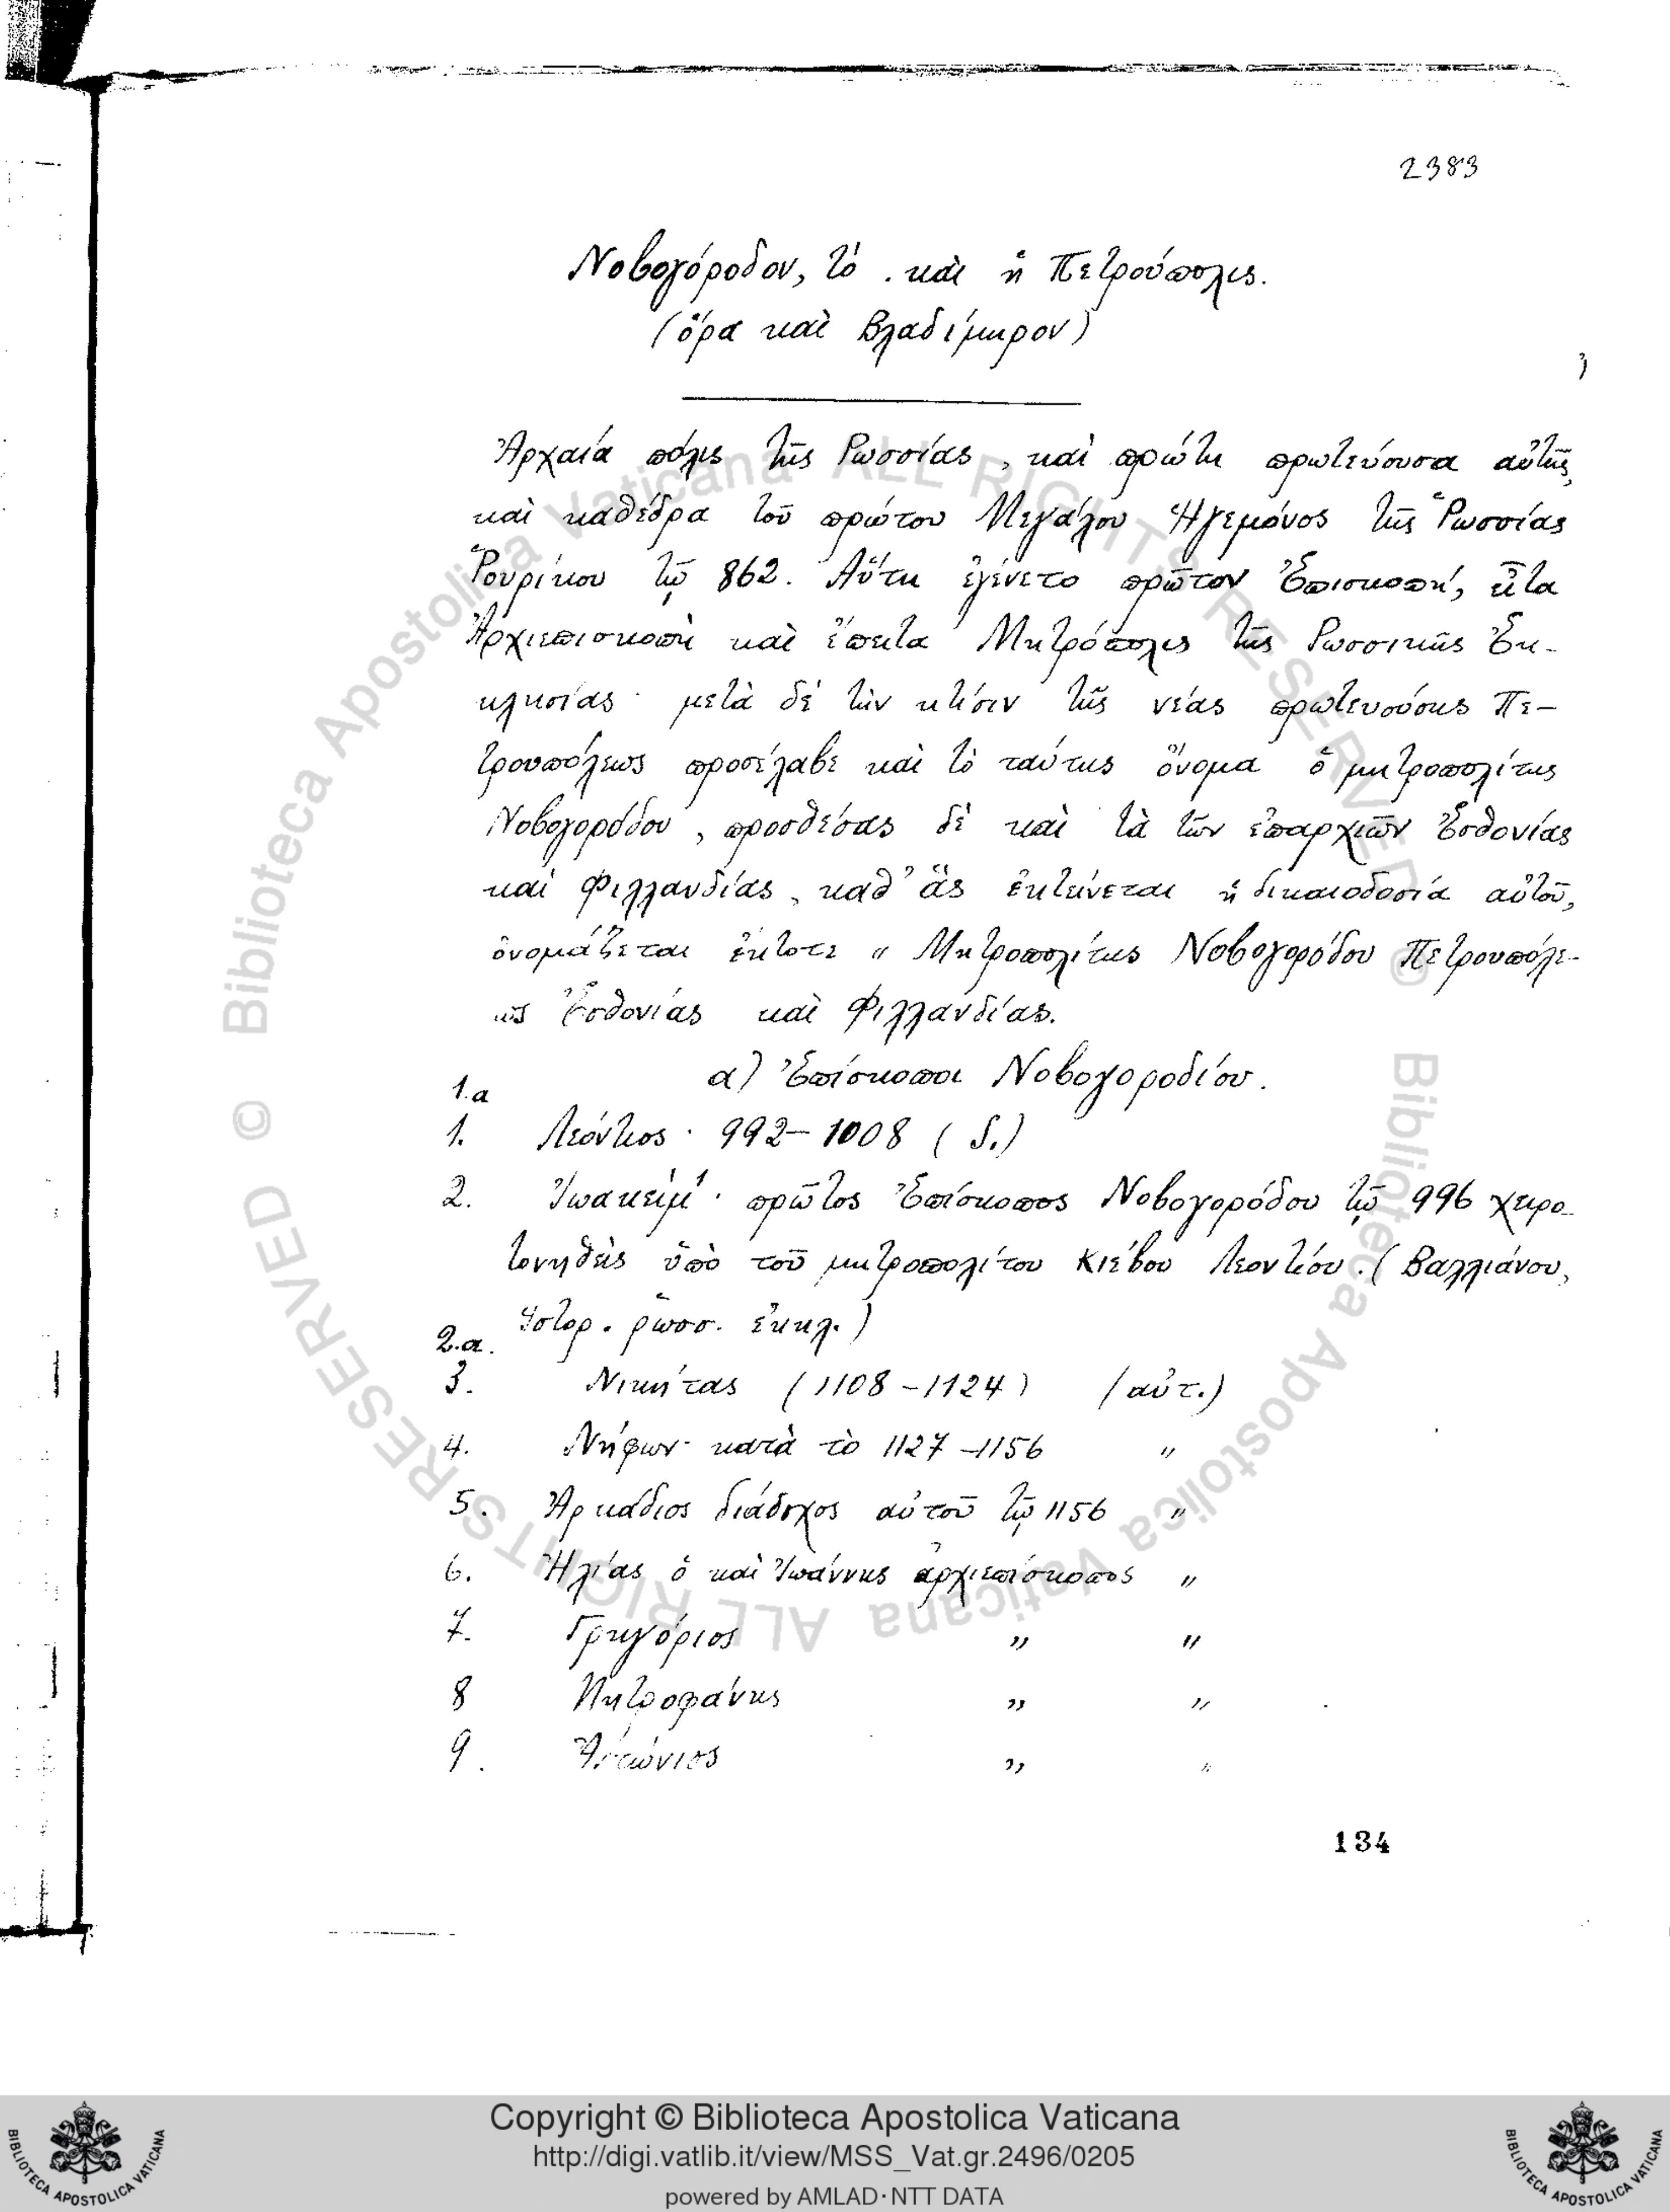 2383
Νοβογόροδον, τό . καὶ ἡ Πετρούπολις.
(ὅρα καὶ Βλαδίμηρον)
Ἀρχαία πόλις τῆς Ρωσσίας, καὶ πρώτη πρωτεύουσα αὐτῆς,
καὶ καθέδρα τοῦ πρώτου Μεγάλου Ἡγεμόνος τῆς Ῥωσσίας
Ῥουρίκου τῷ 862. Αὕτη ἐγένετο πρῶτον Ἐπισκοπή, εἶτα
Ἀρχιεπισκοπὴ καὶ ἔπειτα Μητρόπολις τῆς Ρωσσικῆς Ἐκ-
κλησίας· μετὰ δὲ τὴν κτίσιν τῆς νέας πρωτευούσης Πε-
τρουπόλεως προσέλαβε καὶ τὸ ταύτης ὄνομα ὁ μητροπολίτης
Νοβογορόδου, προσθέσας δὲ καὶ τὰ τῶν ἐπαρχιῶν Ἐσθονίας
καὶ Φιλλανδίας, καθ' ἃς ἐκτείνεται ἡ δικαιοδοσία αὐτοῦ,
ὀνομάζεται ἔκτοτε „ Μητροπολίτης Νοβογορόδου Πετρουπόλε-
ως Ἐσθονίας καὶ Φιλλανδίας.
α) Ἐπίσκοποι Νοβογοροδίου.
1.α
1. Λεόντιος · 992–1008 (S.)
2. Ἰωακεὶμ · πρῶτος Ἐπίσκοπος Νοβογορόδου τῷ 996 χειρο-
τονηθεὶς ὑπὸ τοῦ μητροπολίτου Κιέβου Λεοντίου. (Βαλλιάνου,
Ἱστορ. ῥωσσ. ἐκκλ.)
2.α.
3. Νικήτας (1108–1124) (αὐτ.)
4. Νήφων· κατὰ τὸ 1127–1156 „
5. Ἀρκάδιος διάδοχος αὐτοῦ τῷ 1156 „
6. Ἠλίας ὁ καὶ Ἰωάννης ἀρχιεπίσκοπος „
7. Γρηγόριος „ „
8 Μητροφάνης „ „
9. Ἀντώνιος „ „
134
Biblioteca Apostolica Vaticana ALL RIGHTS RESERVED ©
Biblioteca Apostolica Vaticana ALL RIGHTS RESERVED ©
Copyright © Biblioteca Apostolica Vaticana
http://digi.vatlib.it/view/MSS_Vat.gr.2496/0205
powered by AMLAD·NTT DATA
BIBLIOTECA APOSTOLICA VATICANA
BIBLIOTECA APOSTOLICA VATICANA